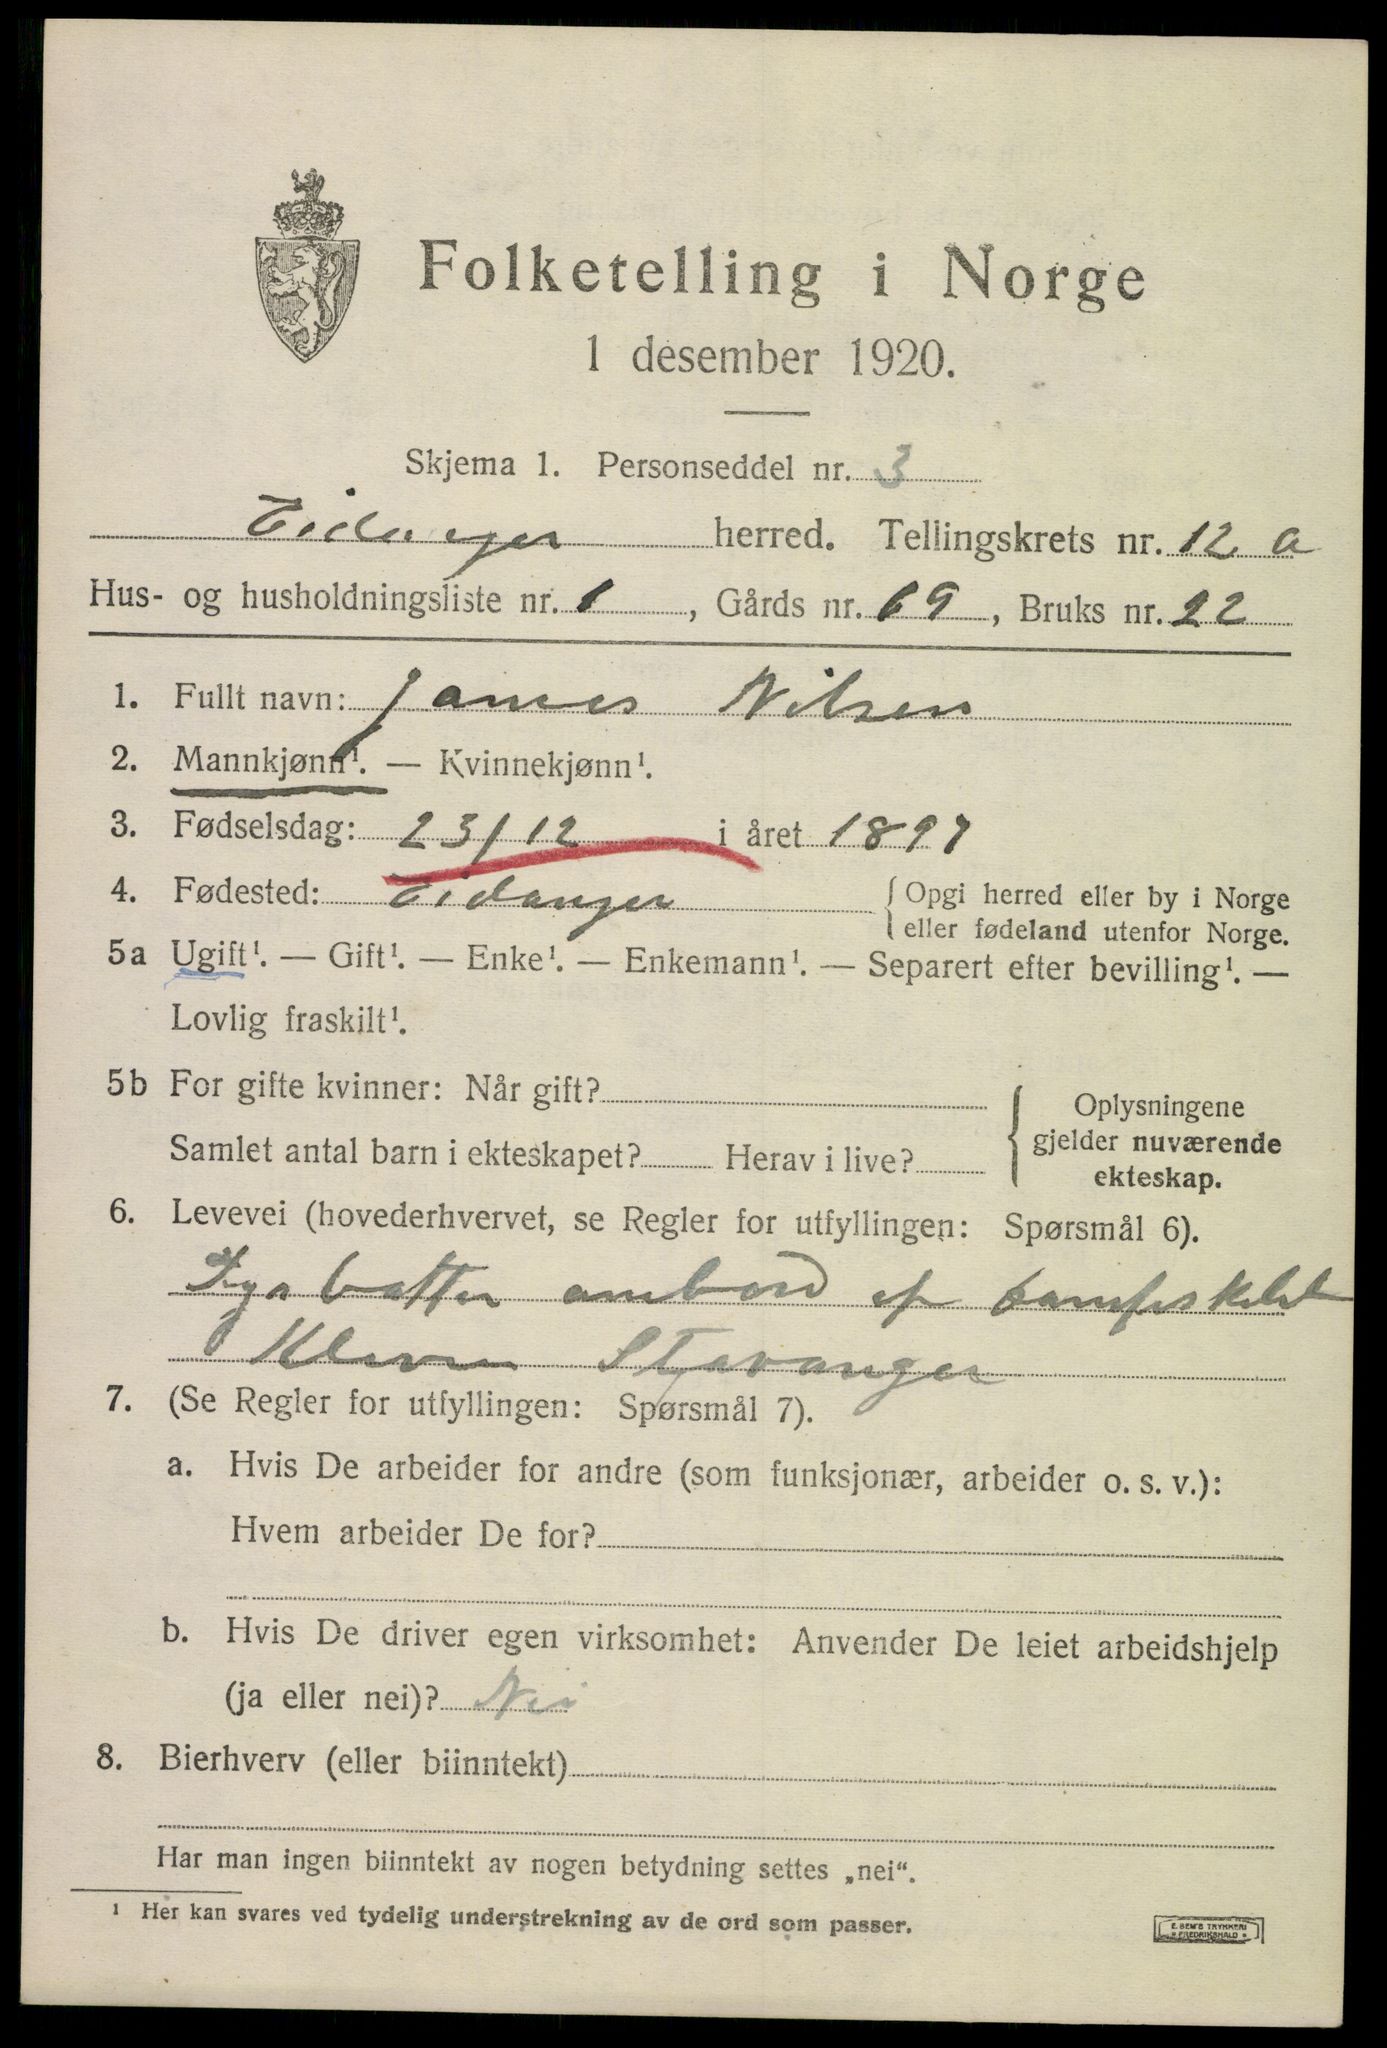 Folketelling i Norge
1 desember 1920.
Skjema 1. Personseddel nr. 3
Eidanger herred. Tellingskrets nr. 12 a
Hus- og husholdningsliste nr. 1, Gårds nr. 69, Bruks nr. 22
1. Fullt navn: James Nilsen
2. Mannkjønn¹. — Kvinnekjønn¹.
3. Fødselsdag: 23/12 i året 1897
4. Fødested: Eidanger {Opgi herred eller by i Norge
eller fødeland utenfor Norge.
5a Ugift¹. — Gift¹. — Enke¹. — Enkemann¹. — Separert efter bevilling¹. —
Lovlig fraskilt¹.
5b For gifte kvinner: Når gift?
Samlet antal barn i ekteskapet? Herav i live?
Oplysningene
gjelder nuværende
ekteskap.
6. Levevei (hovederhvervet, se Regler for utfyllingen: Spørsmål 6).
ombord
Stavanger
7. (Se Regler for utfyllingen: Spørsmål 7).
a. Hvis De arbeider for andre (som funksjonær, arbeider o. s. v.):
Hvem arbeider De for?
b. Hvis De driver egen virksomhet: Anvender De leiet arbeidshjelp
(ja eller nei)? Nei
8. Bierhverv (eller biinntekt)
Har man ingen biinntekt av nogen betydning settes „nei“.
¹ Her kan svares ved tydelig understrekning av de ord som passer.
E. SEM'S TRYKKERI
FREDRIKSHALD